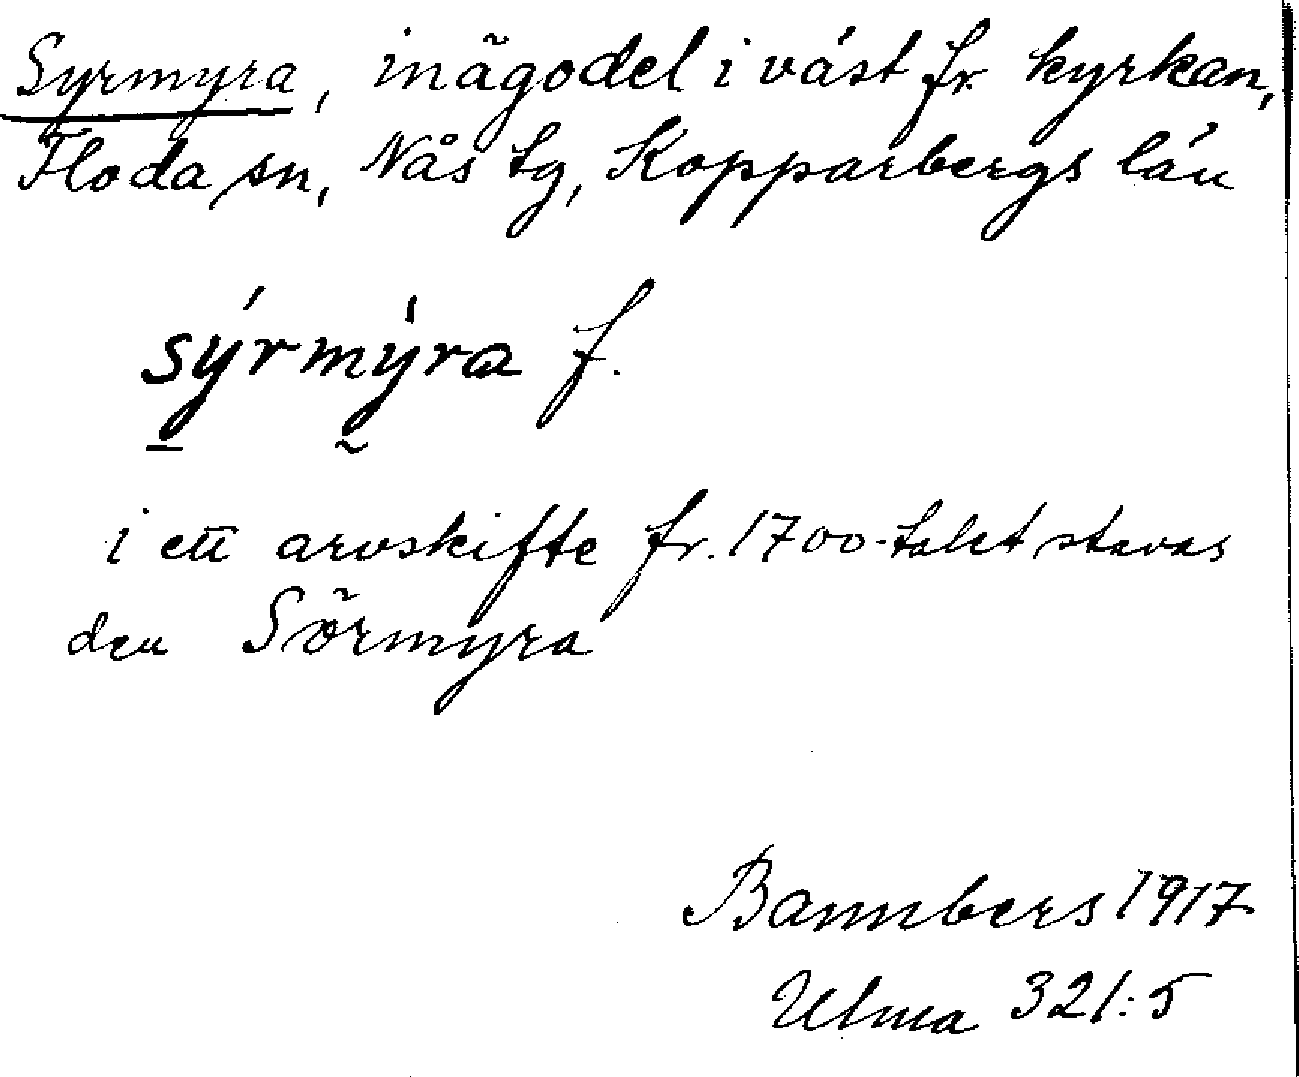 Syrmyra, inägodel i väst fr. kyrkan,
Floda sn, Nås tg, Kopparbergs län
sýrmýra f.
i ett arvskifte fr. 1700-talet stavas
den Sörmyra
Bannbers 1917
Ulma 321:5